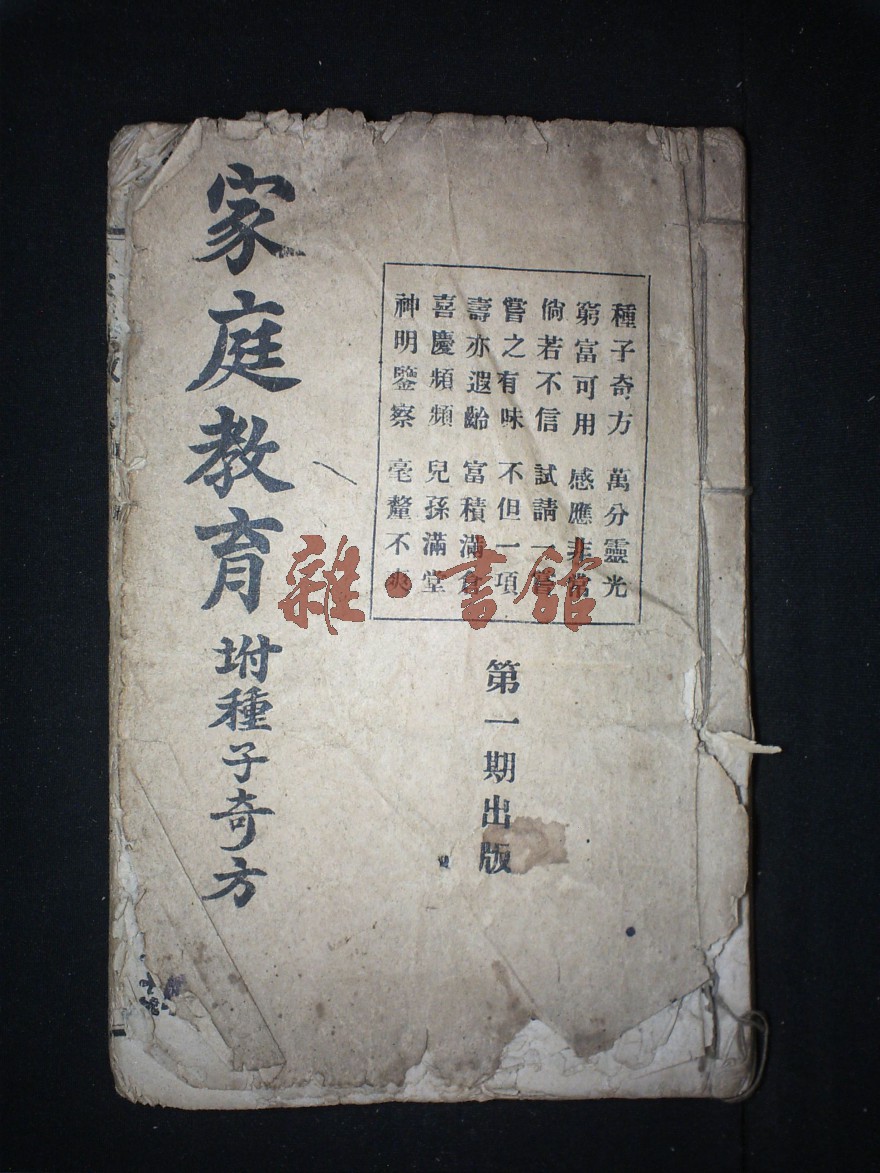 種子奇方 萬分靈光
窮富可用 感應非常
倘若不信 試請一嘗
嘗之有味 不但一項
壽亦遐齡 富積滿倉
喜慶頻頻 兒孫滿堂
神明鑒察 毫釐不爽
第一期出版
家庭教育 坿種子奇方
雜·書館